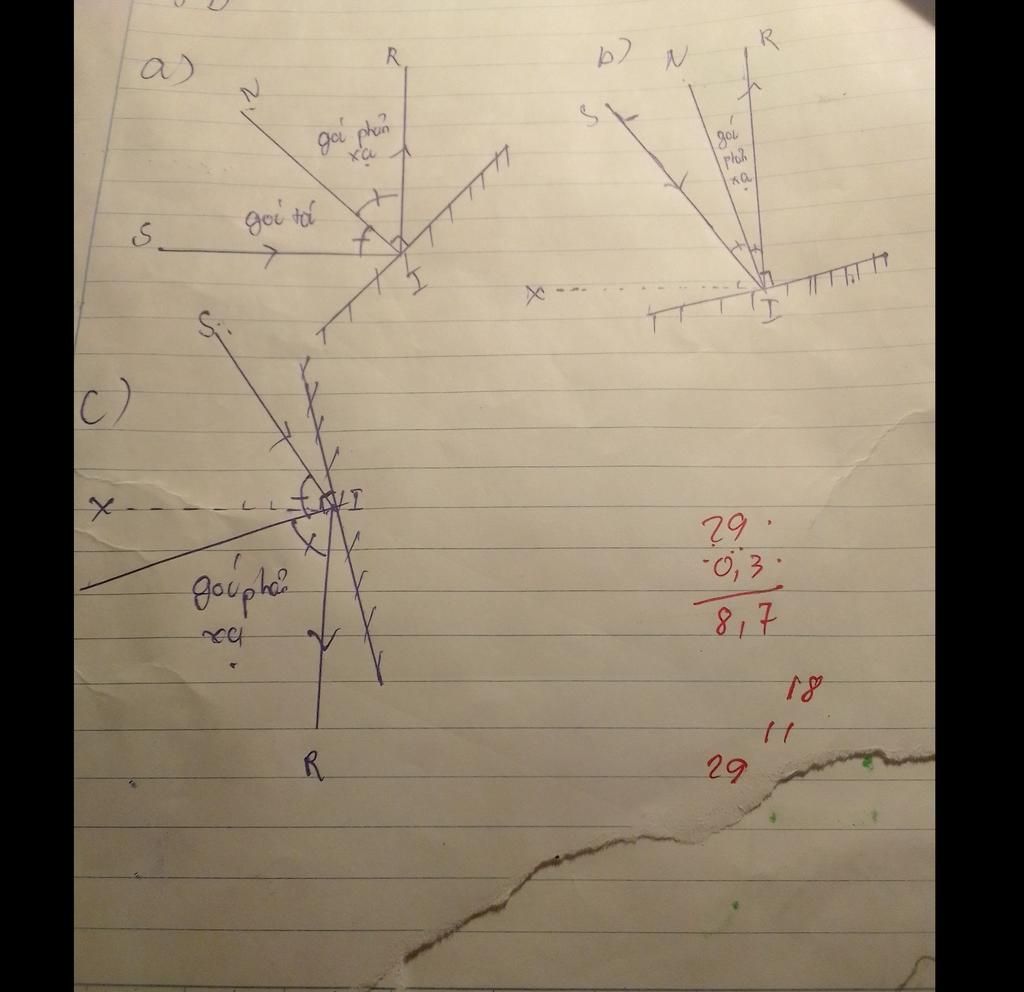 a)
N
R
goí phản
xạ
goí tá
S
I
b)
N
R
S
goí
phản
xạ
x
I
c)
S
x
I
goí phản
xạ
R
29
0,3
8,7
18
11
29